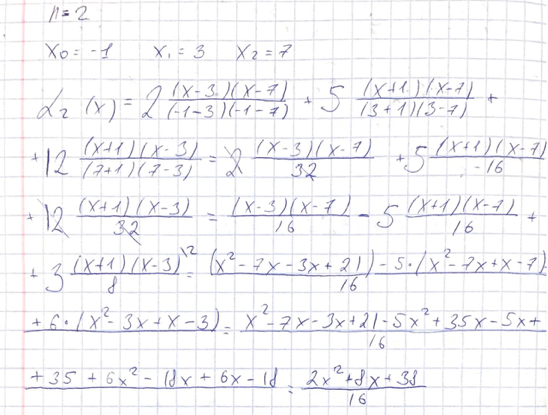 n = 2
x₀ = -1 x₁ = 3 x₂ = 7
L₂ (x) = 2 (x-3)(x-7)/(-1-3)(-1-7) + 5 (x+1)(x-7)/(3+1)(3-7) +
+ 12 (x+1)(x-3)/(7+1)(7-3) = 2 (x-3)(x-7)/32 + 5 (x+1)(x-7)/-16
+ 12 (x+1)(x-3)/32 = (x-3)(x-7)/16 - 5 (x+1)(x-7)/16 +
+ 3 (x+1)(x-3)\2/8 = (x²-7x-3x+21)-5·(x²-7x+x-7)/16
+6·(x²-3x+x-3) = x²-7x-3x+21-5x²+35x-5x+/16
+35+6x²-18x+6x-18 = 2x²+8x+38/16